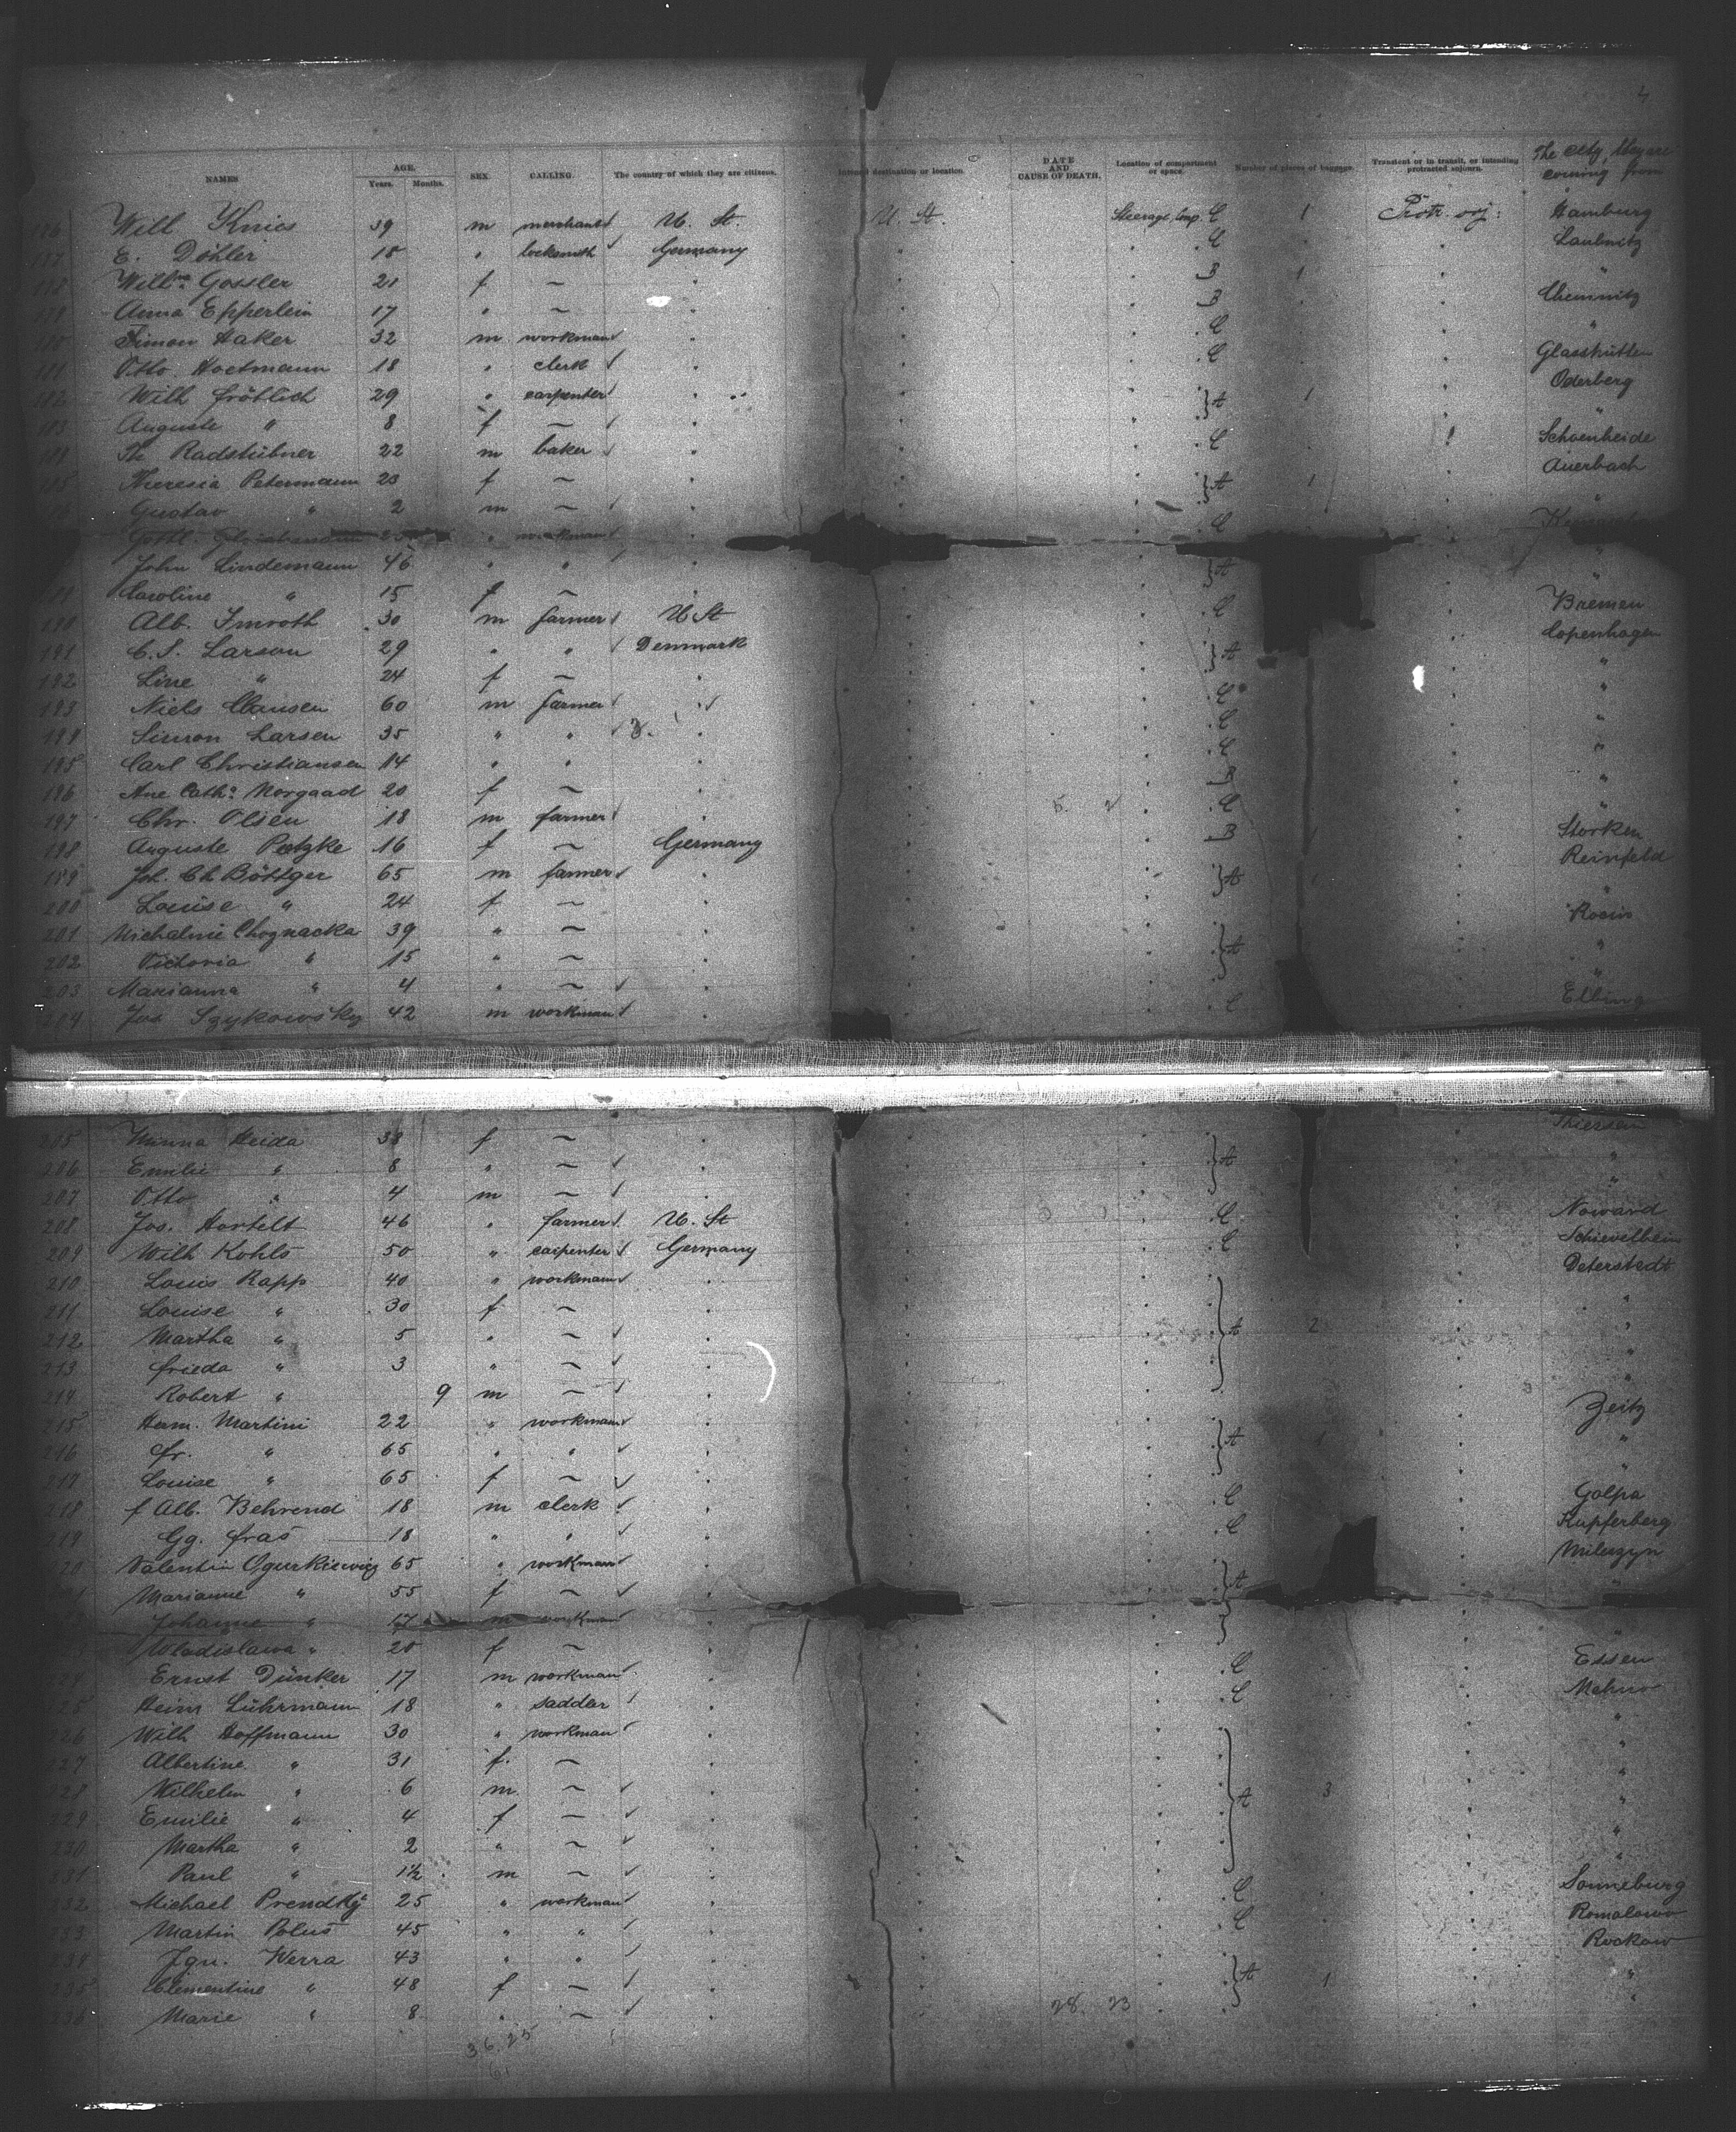 4
NAMES AGE. Years. Months. SEX. CALLING. The country of which they are citizens. Intended destination or location. DATE AND CAUSE OF DEATH. Location of compartment or space. Number of pieces of baggage. Transient or in transit, or intending protracted sojourn. The City they are coming from
176 Will Knies 39 m merchant U. St. U. St. Steerage, Comp. C 1 Protr. soj: Hamburg
177 E. Döhler 18 " locksmith Germany " C " Laubnitz
178 Willm. Gossler 21 f — " B 1 "
179 Anna Epperlein 17 " — " B Chemnitz
180 Simon Haker 32 m workman " C "
181 Otto Hoetmann 18 " clerk " C Glasshütten
182 Wilh Fröhlich 29 " carpenter " A 1 Oderberg
183 Auguste " 8 f — " "
184 Th. Radstübner 22 m baker " C Schoenheide
185 Theresia Petermann 23 f — " A 1 Auerbach
186 Gustav " 2 m — " "
Gottl. 25 " workman " C
John Lindemann 46 " " " A "
189 Caroline " 15 f — " "
190 Alb. Imroth 30 m farmer U St C Bremen
191 C. S. Larson 29 " " Denmark A Copenhagen
192 Line " 24 f — " "
193 Niels Clausen 60 m farmer " C "
194 Simon Larsen 35 " " " C "
195 Carl Christiansen 14 " " " C "
196 Ane Cath. Norgaad 20 f — " B "
197 Chr. Olsen 18 m farmer " C "
198 Auguste Patzke 16 f — Germany B 1 Storken
199 Joh. Ch Böttger 65 m farmer " A 1 Reinfeld
200 Louise " 24 f — " "
201 Michaline Chognacka 39 " — " A
202 Victoria " 15 " — " "
203 Marianna " 4 " — " "
204 Jos Szykowsky 42 m workman " C Elbing
205 Minna Heida 38 f — " A
206 Emilie " 8 " — " "
207 Otto " 4 m — " "
208 Jos. Hortelt 46 " farmer U. St C Noward
209 Wilh Kohls 50 " carpenter Germany C Schievelbein
210 Louis Rapp 40 " workman " A 2 Deterstedt
211 Louise " 30 f — " "
212 Martha " 5 " — " "
213 Frieda " 3 " — " "
214 Robert " 9 m — " "
215 Herm. Martini 22 " workman " A 1 Zeitz
216 Fr. " 65 " " " "
217 Louise " 65 f — " "
218 f Alb. Behrend 18 m clerk " C Golpa
219 Gg. Fras 18 " " " C Kupferberg
20 Valentin Ogurkiewicz 65 " workman " A Mileszyn
Marianne " 55 f — " "
Johanne " 17 m workman "
Wladislawa " 20 f — " "
224 Ernst Dünker 17 m workman " C Essen
225 Heinr Lührmann 18 " saddler " C
226 Wilh Hoffmann 30 " workman " A 3 "
227 Albertine " 31 f. — " "
228 Wilhelm " 6 m — " "
229 Emilie " 4 f — " "
230 Martha " 2 " — " "
231 Paul " 1½ m — " "
232 Michael Prendky 25 " workman " C Sonneburg
233 Martin Polus 45 " " " C Romalowo
234 Ign. Werra 43 " " " A 1 Rockow
235 Clementine " 48 f — " "
236 Marie " 8 " — " "
28. 23
36. 25
61